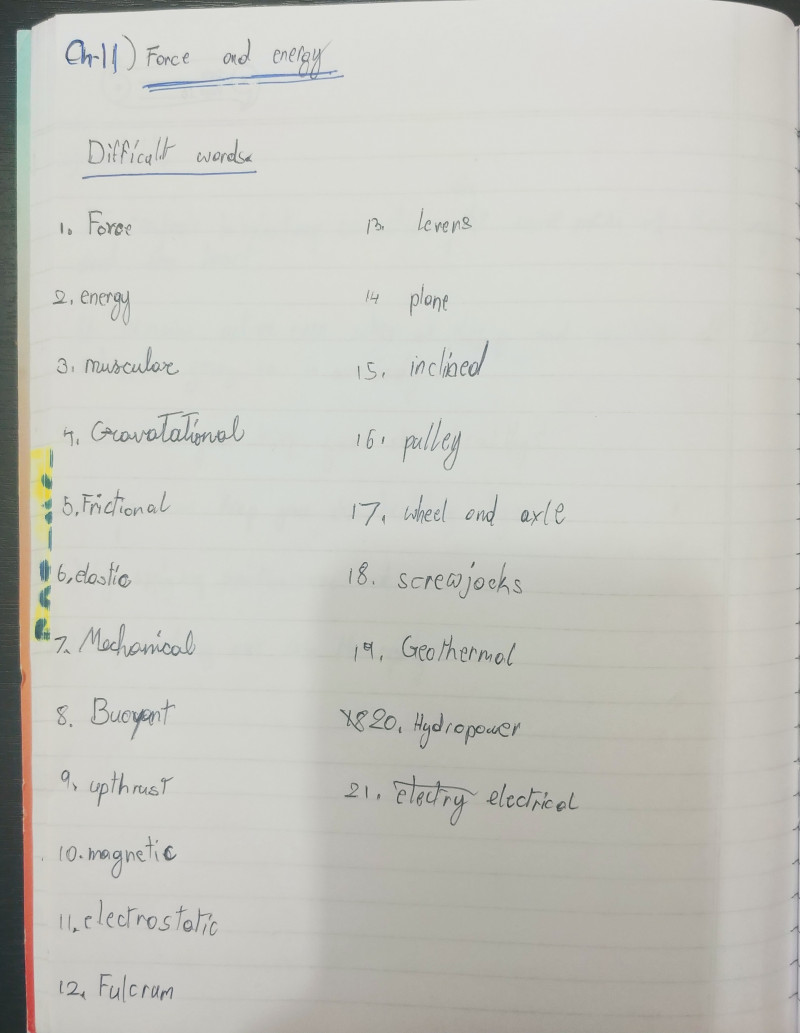 Ch-11) Force and energy
Difficult words
1. Force
2. energy
3. muscular
4. Gravatational
5. Frictional
6. elastic
7. Mechanical
8. Buoyant
9. upthrust
10. magnetic
11. electrostatic
12. Fulcrum
13. levers
14 plane
15. inclined
16. pulley
17. wheel and axle
18. screwjacks
19. Geothermal
20. Hydropower
21. electry electrical